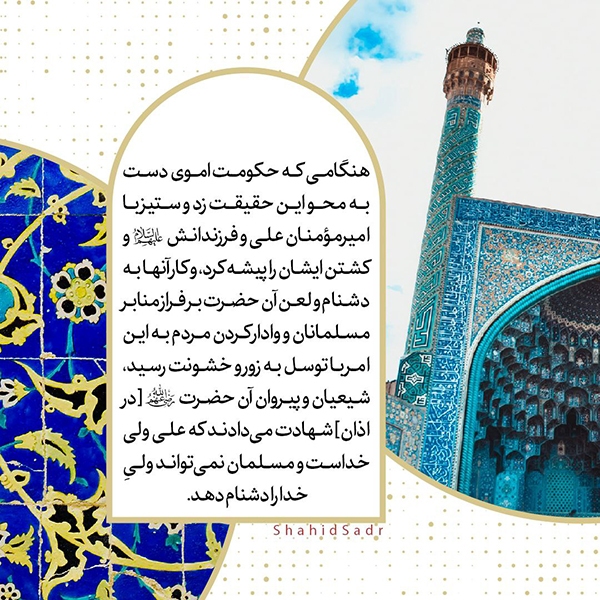 هنگامی که حکومت اموی دست
به محو این حقیقت زد و ستیز با
امیرمؤمنان علی و فرزندانش علیهم‌السلام و
کشتن ایشان را پیشه کرد، و کار آنها به
دشنام و لعن آن حضرت بر فراز منابر
مسلمانان و وادار کردن مردم به این
امر با توسل به زور و خشونت رسید،
شیعیان و پیروان آن حضرت [در
اذان] شهادت می‌دادند که علی ولی
خداست و مسلمان نمی‌تواند ولیِ
خدا را دشنام دهد.
ShahidSadr